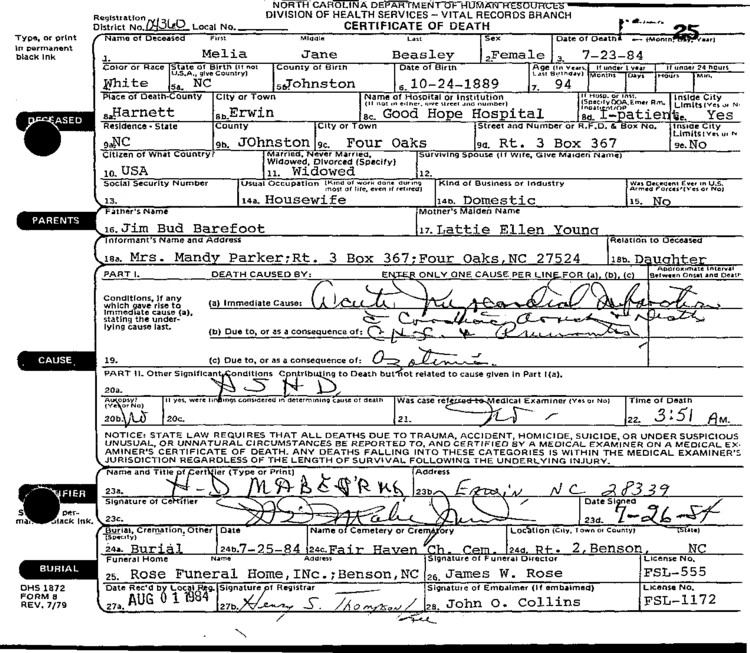 NORTH CAROLINA DEPARTMENT OF HUMAN RESOURCES
DIVISION OF HEALTH SERVICES – VITAL RECORDS BRANCH
CERTIFICATE OF DEATH
Registration District No. 04360 Local No. 25
Type, or print in permanent black ink
Name of Deceased First Middle Last Sex Date of Death (Month, Day, Year)
1. Melia Jane Beasley 2. Female 3. 7-23-84
Color or Race State of Birth (If not U.S.A., give Country) County of Birth Date of Birth Age (In Years, Last Birthday) If under 1 year Months Days If under 24 hours Hours Min.
4. White 5a. NC 5b. Johnston 6. 10-24-1889 7. 94
Place of Death-County City or Town Name of Hospital or Institution (If not in either, give street and number) If Hosp. or Inst. (Specify DOA, Emer Rm. Inpatient/OP Inside City Limits (Yes or No
DECEASED
8a. Harnett 8b. Erwin 8c. Good Hope Hospital 8d. I-patient 8e. Yes
Residence - State County City or Town Street and Number or R.F.D. & Box No. Inside City Limits (Yes or N
9a. NC 9b. JOhnston 9c. Four Oaks 9d. Rt. 3 Box 367 9e. No
Citizen of What Country? Married, Never Married, Widowed, Divorced (Specify) Surviving Spouse (If Wife, Give Maiden Name)
10. USA 11. Widowed 12.
Social Security Number Usual Occupation (Kind of work done during most of life, even if retired) Kind of Business or Industry Was Decedent Ever in U.S. Armed Forces? (Yes or No)
13. 14a. Housewife 14b. Domestic 15. No
PARENTS
Father's Name Mother's Maiden Name
16. Jim Bud Barefoot 17. Lattie Ellen Young
Informant's Name and Address Relation to Deceased
18a. Mrs. Mandy Parker;Rt. 3 Box 367;Four Oaks,NC 27524 18b. Daughter
PART I. DEATH CAUSED BY: ENTER ONLY ONE CAUSE PER LINE FOR (a), (b), (c) Approximate Interval Between Onset and Death
Conditions, if any which gave rise to immediate cause (a), stating the underlying cause last.
(a) Immediate Cause: Acute Myocardial Infarction
Death
(b) Due to, or as a consequence of: & Pneumonia
CAUSE
19. (c) Due to, or as consequence of: Azotemia
PART II. Other Significant Conditions Contributing to Death but not related to cause given in Part I(a).
20a. ASHD
Autopsy? (Yes or No) If yes, were findings considered in determining cause of death Was case referred to Medical Examiner (Yes or No) Time of Death
20b. No 20c. 21. No 22. 3:51 AM.
NOTICE: STATE LAW REQUIRES THAT ALL DEATHS DUE TO TRAUMA, ACCIDENT, HOMICIDE, SUICIDE, OR UNDER SUSPICIOUS
UNUSUAL, OR UNNATURAL CIRCUMSTANCES BE REPORTED TO, AND CERTIFIED BY A MEDICAL EXAMINER ON A MEDICAL EX-
AMINER'S CERTIFICATE OF DEATH. ANY DEATHS FALLING INTO THESE CATEGORIES IS WITHIN THE MEDICAL EXAMINER'S
JURISDICTION REGARDLESS OF THE LENGTH OF SURVIVAL FOLLOWING THE UNDERLYING INJURY.
Name and Title of Certifier (Type or Print) Address
23a. 23b. Erwin NC 28339
Signature of Certifier Date Signed
23c. 23d. 7-26-84
black ink.
Burial, Cremation, Other (Specify) Date Name of Cemetery or Crematory Location (City, Town or County) (State)
24a. Burial 24b. 7-25-84 24c. Fair Haven Ch. Cem. 24d. Rt. 2, Benson, NC
BURIAL
Funeral Home Name Address Signature of Funeral Director License No.
25. Rose Funeral Home,INc.;Benson,NC 26. James W. Rose FSL-555
Date Rec'd by Local Reg. Signature of Registrar Signature of Embalmer (If embalmed) License No.
27a. AUG 01 1984 27b. Henry S. Thompson 28. John O. Collins FSL-1172
DHS 1872
FORM 8
REV. 7/79